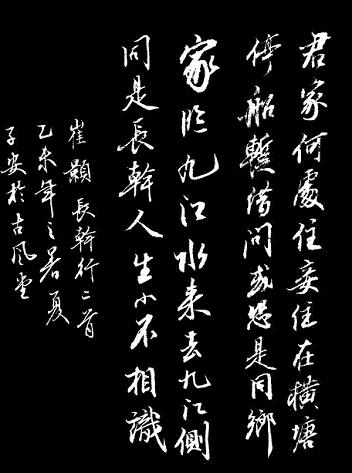 君家何處住妾住在橫塘
停船暫借問或恐是同鄉
家临九江水来去九江側
同是長幹人生小不相識
崔顥長幹行二首
乙未年之暑夏
子安於古風堂